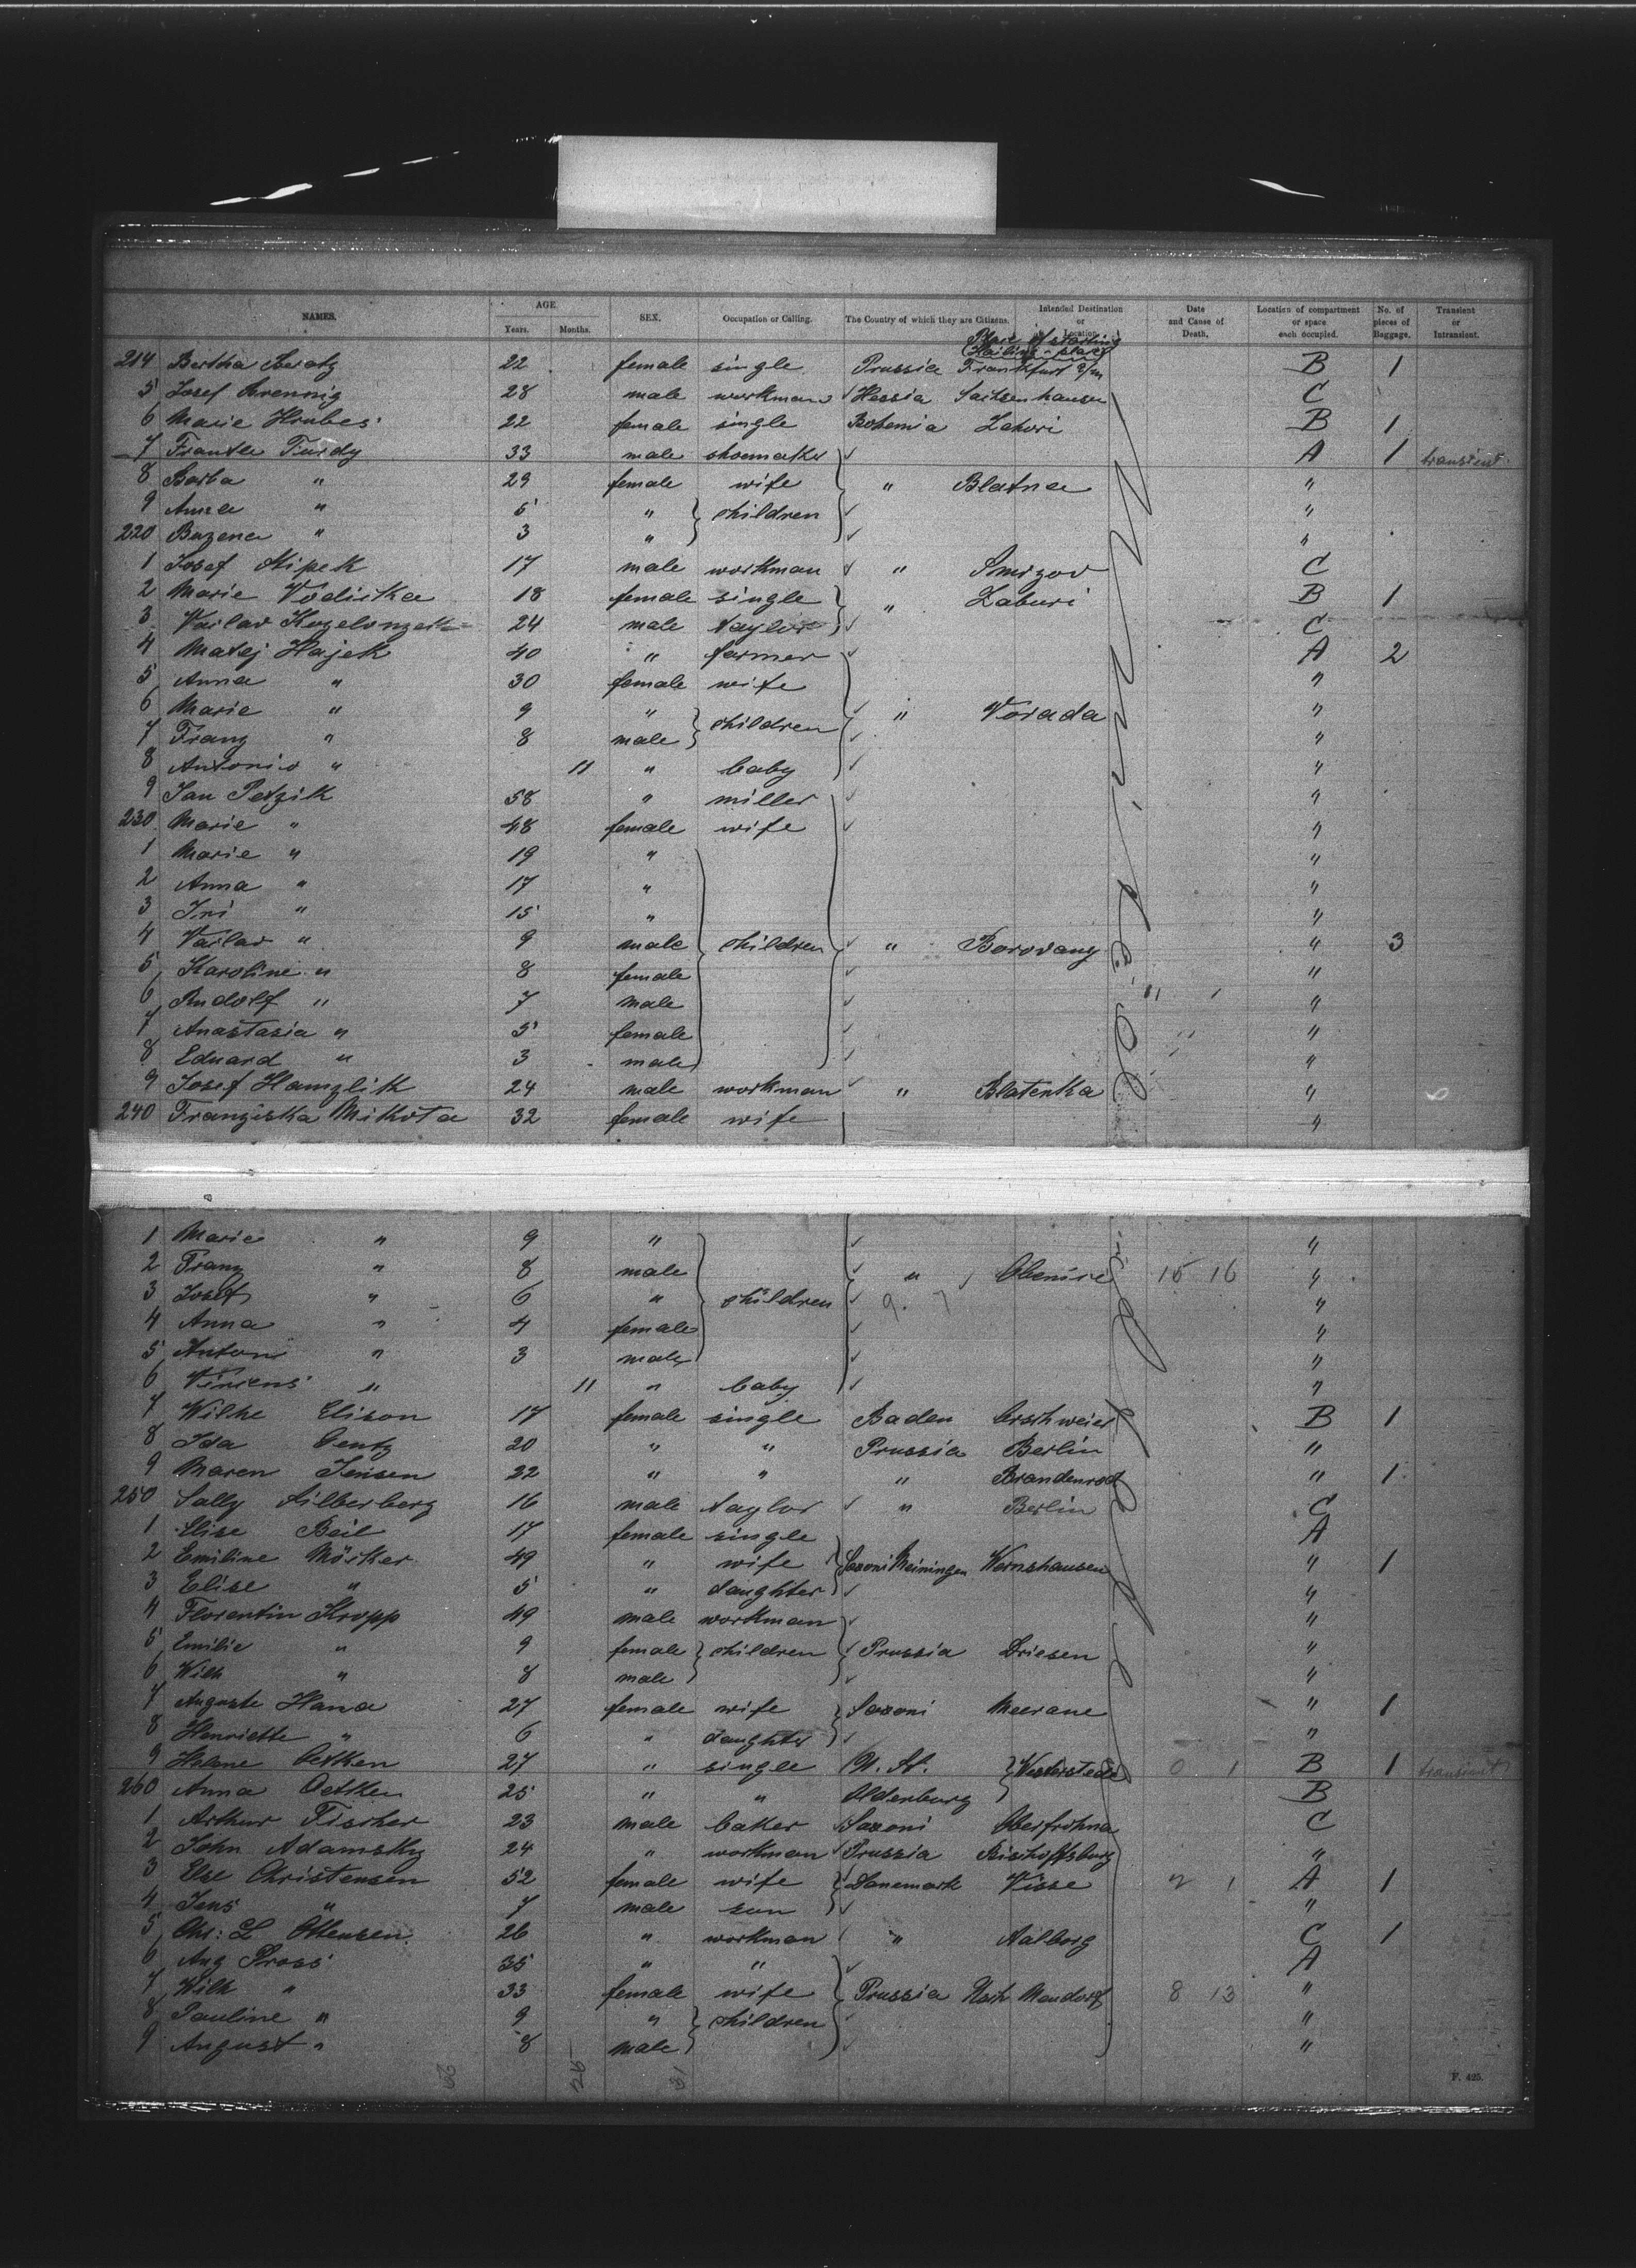 NAMES. AGE. Years. Months. SEX. Occupation or Calling. The Country of which they are Citizens. Intended Destination or Location. Date and Cause of Death. Location of compartment or space each occupied. No. of pieces of Baggage. Transient or Intransient.
Place of starting
214 Bertha 22 female single Prussia Frankfurt a/m B 1
5 Josef 28 male workman Hessia Sachsenhausen C
6 Marie Hrubes 22 female single Bohemia Zahori B 1
7 Frantle Turdy 33 male shoemaker A 1 transient
8 Barba " 29 female wife " Blatna "
9 Anna " 5 " children "
220 Bazena " 3 " "
1 Josef 17 male workman " Smizov C
2 Marie Vodicka 18 female single " Zaburi B 1
3 Vaclav 24 male taylor C
4 Matej Hajek 40 " farmer A 2
5 Anna " 30 female wife "
6 Marie " 9 " children " Vorada "
7 Franz " 8 male "
8 Antonio " 11 " baby "
9 Jan Petzik 58 " miller "
230 Marie " 48 female wife "
1 Marie " 19 " "
2 Anna " 17 " "
3 Iri " 15 " "
4 Vaclav " 9 male children " Borovany " 3
5 Karoline " 8 female "
6 Rudolf " 7 male "
7 Anastasia " 5 female "
8 Eduard " 3 male "
9 Josef Hamzlik 24 male workman " Blatenka "
240 Franziska Mikota 32 female wife "
1 Marie " 9 " "
2 Franz " 8 male " 15 16 "
3 Josef " 6 " children "
4 Anna " 4 female "
5 Anton " 3 male "
6 " 11 " baby "
7 Wilhe Elison 17 female single Baden B 1
8 Ida Gentz 20 " " Prussia Berlin "
9 Maren Jensen 22 " " " Brandenrod " 1
250 Sally Silberberg 16 male taylor " Berlin C
1 Elise Beil 17 female single A
2 Emiline Möscker 49 " wife Saxoni Meiningen Wernshausen " 1
3 Elise " 5 " daughter "
4 Florentin Kropp 49 male workman "
5 Emilie " 9 female children Prussia Driesen "
6 Wilh " 8 male "
7 Auguste Hana 27 female wife Saxoni Meerane " 1
8 Henriette " 6 " daughter "
9 Helene Oetken 27 " single U. St. Westerstede 0 1 B 1 transient
260 Anna Oetken 25 " " Oldenburg B
1 Arthur Fischer 23 male baker Saxoni Oberfrohna C
2 John Adamsky 24 " workman Prussia Bischoffsburg "
3 Else Christensen 52 female wife Danemark Visse 2 1 A 1
4 Jens " 7 male son "
5 Chr: L Ottensen 26 " workman " Aalborg C 1
6 Aug Pross 35 " " A
7 Wilh " 33 female wife Prussia 8 13 "
8 Pauline " 9 " children "
9 August " 8 male "
F. 425.